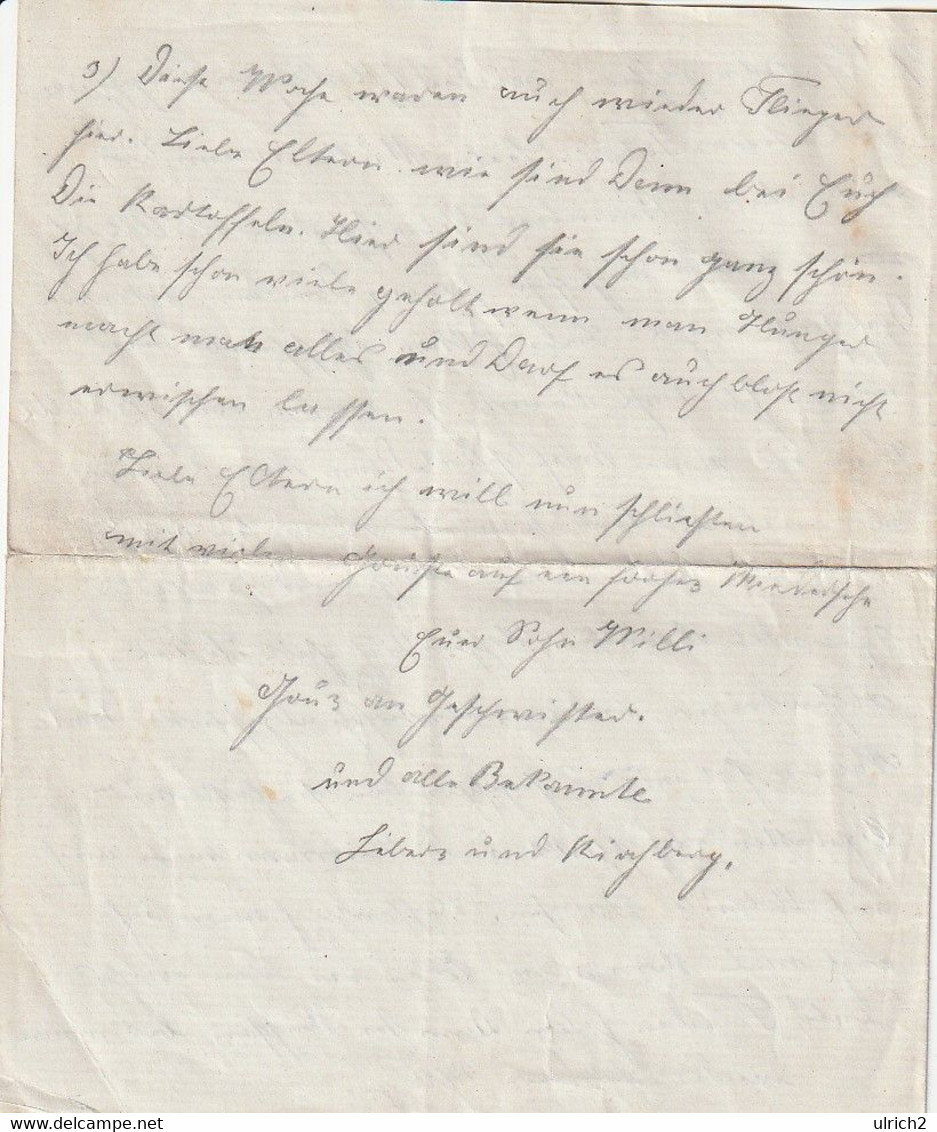 3) Diese Woche waren auch wieder Flieger
hier. Liebe Eltern wie sind denn bei Euch
die Kartoffeln. Hier sind sie schon ganz schön.
Ich habe schon viele geholt wenn man Hunger
macht man alles und darf es auch bloß nicht
erwischen lassen.
Liebe Eltern ich will nun schließen
mit vielen Grüße auf ein frohes Wiedersehn
Euer Sohn Willi
Gruß an Geschwister.
und alle Bekannte
und Kirchberg.
ulrich2